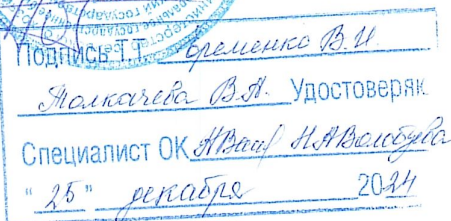 Подпись Т.Т. Еременко В.И.
Толкачева В.А. Удостоверяю
Специалист ОК Н.А.Волобуева
"25" декабря 2024